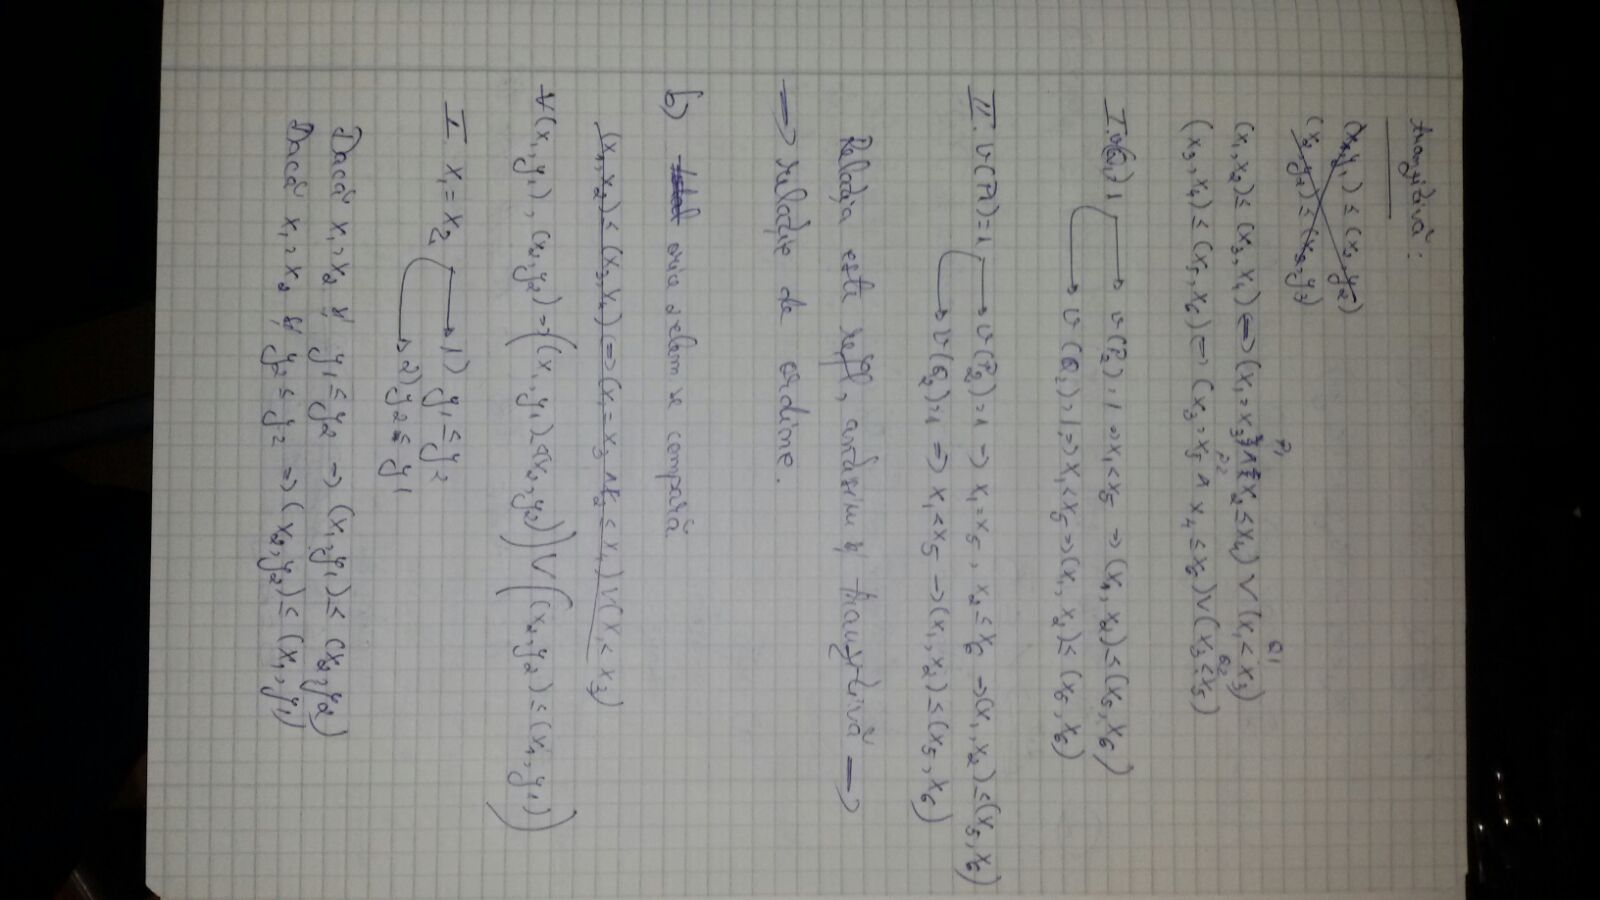 tranzitivă:
(x1,y1) ≤ (x2,y2)
(x2,y2) ≤ (x3,y3)
(x1,x2) ≤ (x3,x4) ⇔ (x1=x3 ∧ x2≤x4) ∨ (x1<x3)
P1 Q1
(x3,x4) ≤ (x5,x6) ⇔ (x3=x5 ∧ x4≤x6) ∨ (x3<x5)
P2 Q2
I. v(Q1)=1 → v(P2)=1 ⇒ x1<x5 ⇒ (x1,x2) ≤ (x5,x6)
→ v(Q2)=1 ⇒ x1<x5 ⇒ (x1,x2) ≤ (x5,x6)
II. v(P1)=1 → v(P2)=1 ⇒ x1=x5, x2≤x6 ⇒ (x1,x2) ≤ (x5,x6)
→ v(Q2)=1 ⇒ x1<x5 ⇒ (x1,x2) ≤ (x5,x6)
Relația este refl, antisim și tranzitivă ⇒
⇒ relație de ordine.
b) orice 2 elem se compară
(x1,x2) ≤ (x3,x4) ⇔ (x1=x3 ∧ x2≤x4) ∨ (x1<x3)
∀(x1,y1), (x2,y2) ⇒ ((x1,y1) ≤ (x2,y2)) ∨ ((x2,y2) ≤ (x1,y1))
I. x1=x2 → 1) y1≤y2
→ 2) y2≤y1
Dacă x1=x2 și y1≤y2 ⇒ (x1,y1) ≤ (x2,y2)
Dacă x1=x2 și y2≤y2 ⇒ (x2,y2) ≤ (x1,y1)